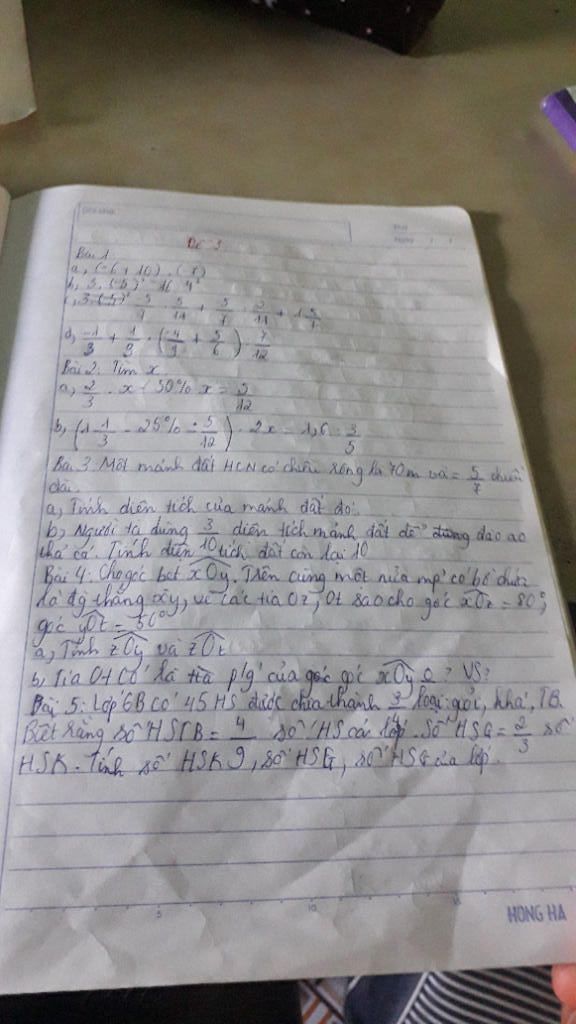 Đề 3
Bài 1:
a, (-6 + 10) . (
b, 3. (-5)² - 16 4²
c, -5/7 . 5/11 + 5/7 . 2/11 + 1 5/7
d, -1/3 + 1/3 . (-4/9 + 5/6) : 7/12
Bài 2: Tìm x
a, 2/3 . x + 50% x = 5/12
b, (1 1/3 - 25% - 5/12) - 2x = 1,6 : 3/5
Bài 3: Một mảnh đất HCN có chiều rộng là 70m và = 5/7 chiều
dài
a, Tính diện tích của mảnh đất đó.
b, Người ta dùng 3/10 diện tích mảnh đất để đào ao
thả cá. Tính diện tích đất còn lại 10
Bài 4: Cho góc bẹt xOy. Trên cùng một nửa mp có bờ chứa
là đg thẳng xy, vẽ các tia Oz, Ot sao cho góc xOz = 80°,
góc yOt = 50°
a, Tính zOy và zOt
b, Tia Ot có là tia p/g của góc góc xOy ? VS?
Bài 5: Lớp 6B có 45 HS được chia thành 3 loại: giỏi, khá, TB
Biết rằng số HSTB = 4/9 số HS cả lớp. Số HSG = 2/3 số
HSK. Tính số HSK, số HSG, số HSG của lớp.
5 10 15
HONG HA